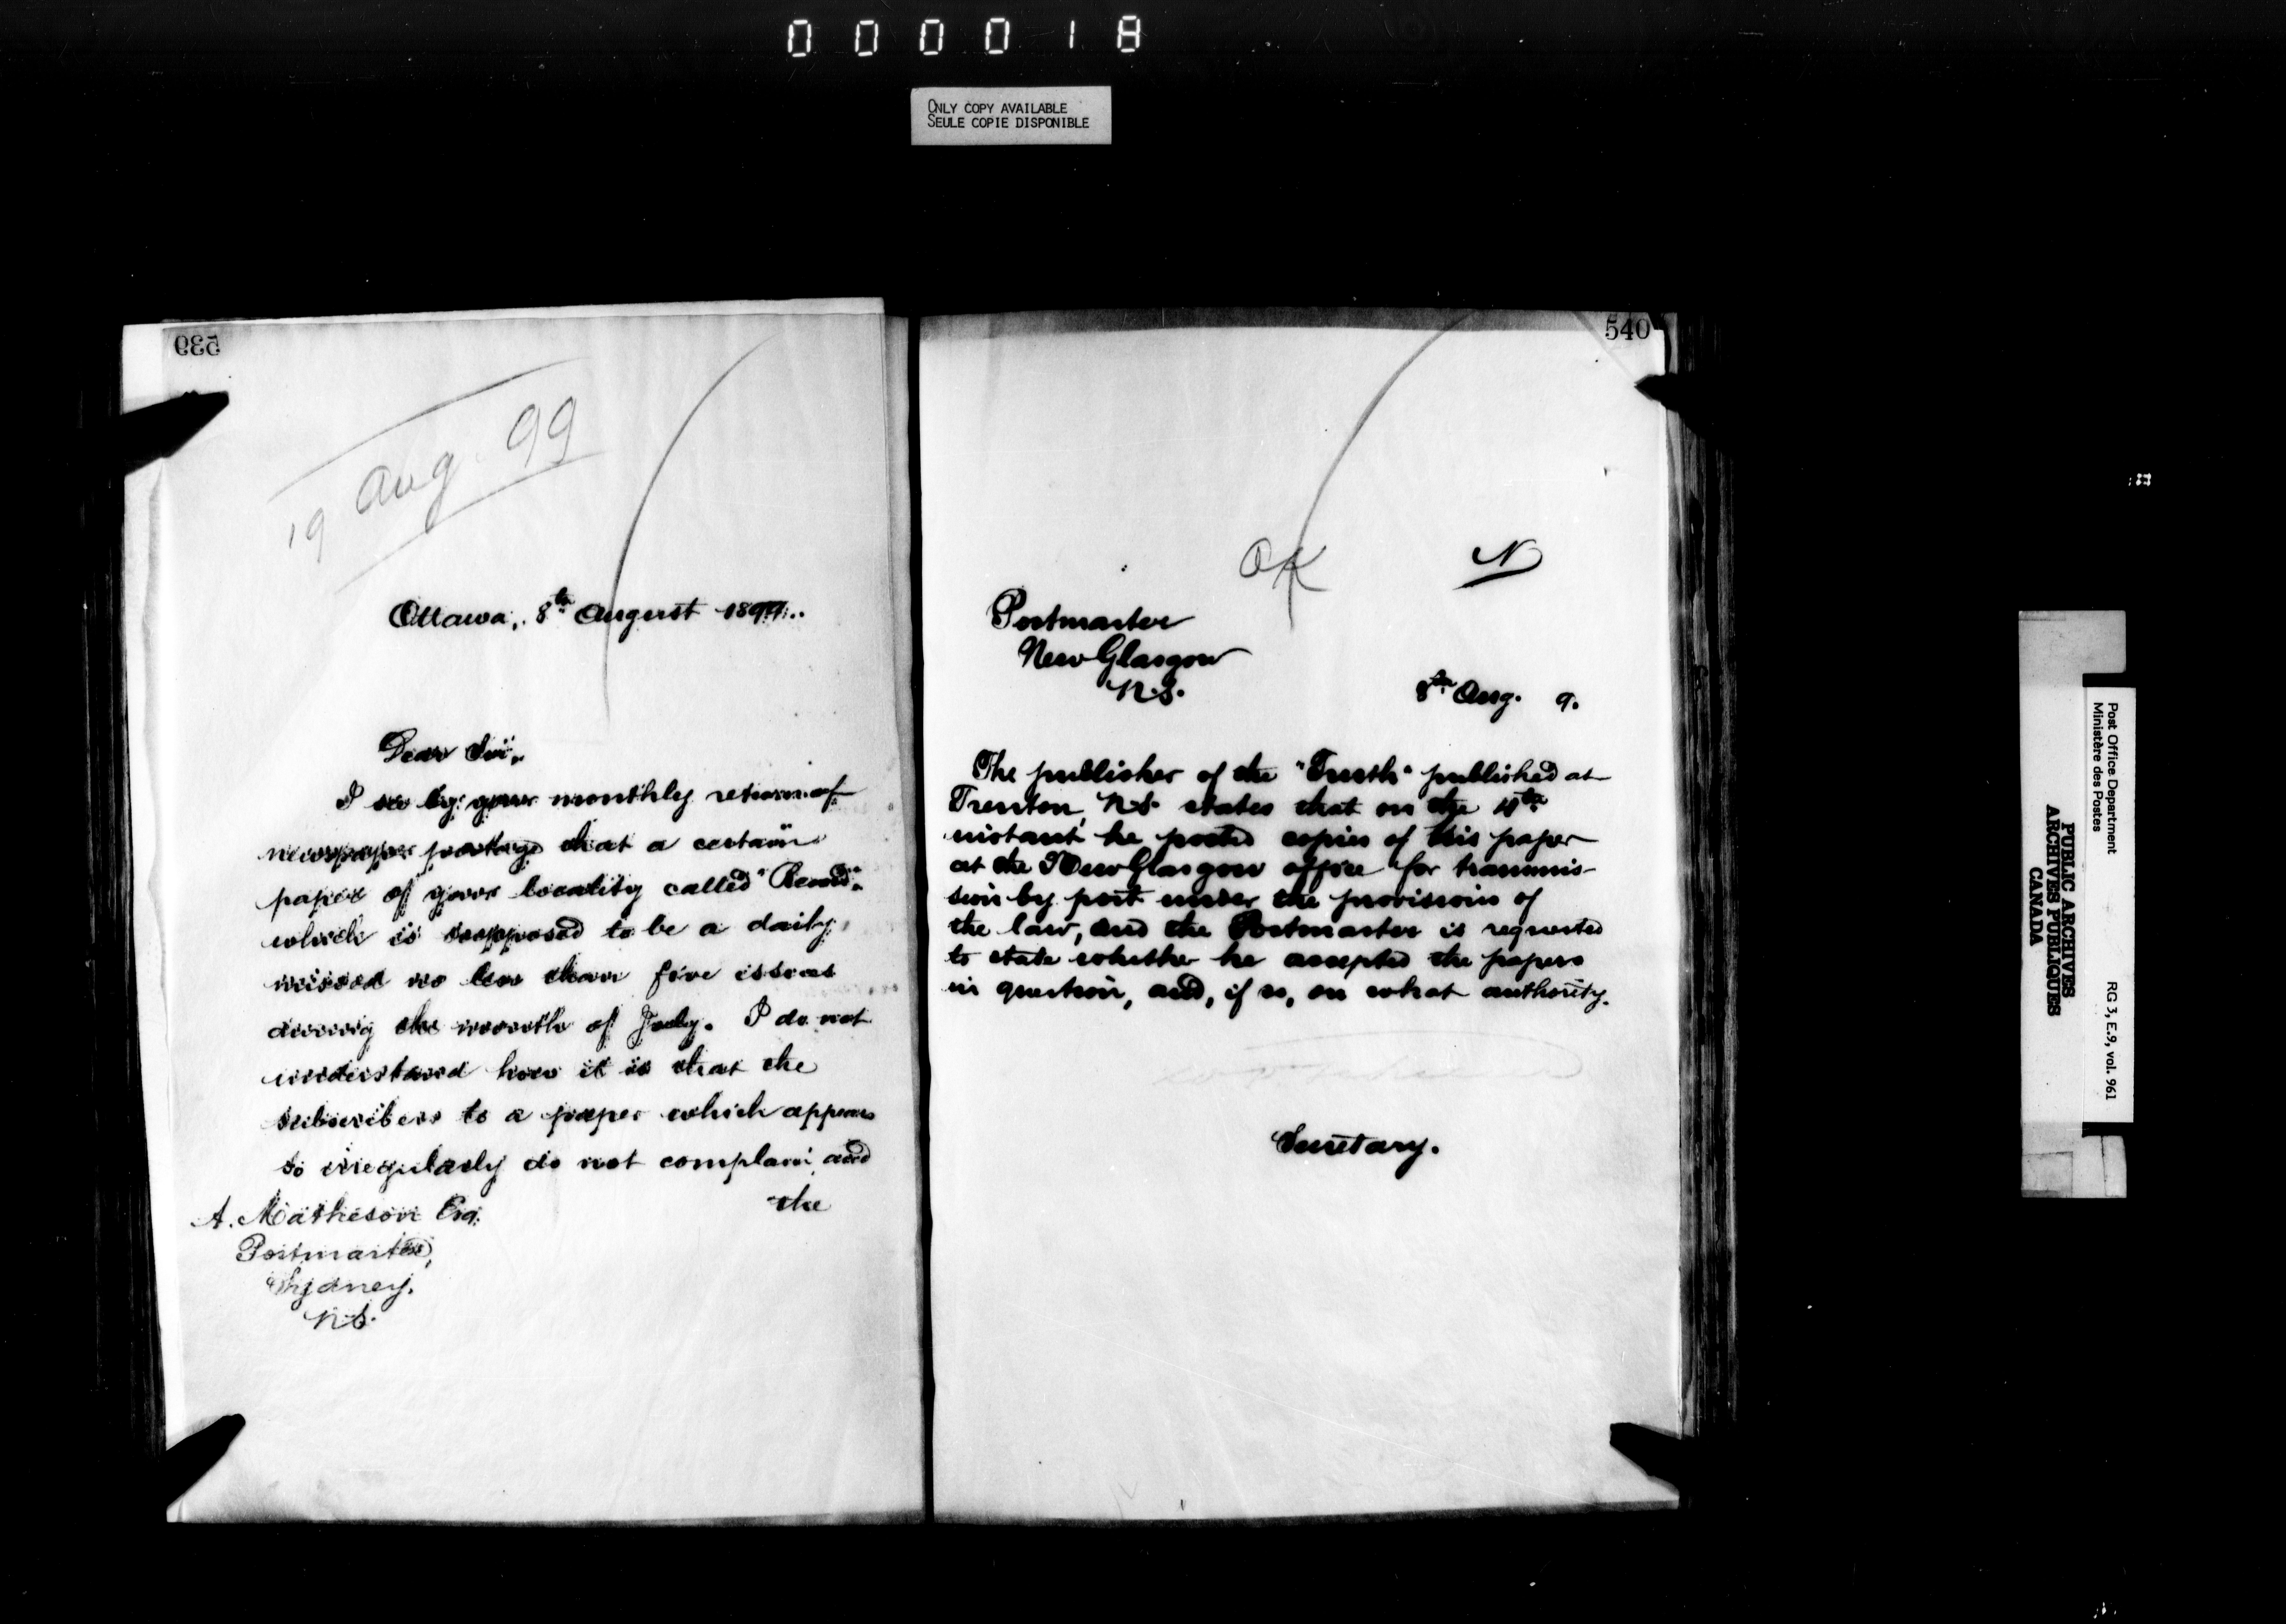 000018
ONLY COPY AVAILABLE
SEULE COPIE DISPONIBLE
539
19 Aug 99
Ottawa, 8th August 1899.
Dear Sir,
I see by your monthly return of
newspaper postage that a certain
paper of your locality called "Record"
which is supposed to be a daily,
missed no less than five issues
during the month of July. I do not
understand how it is that the
subscribers to a paper which appears
so irregularly do not complain, and
the
A. Matheson Esq.
Postmaster,
Sydney.
N.S.
540
OK
N
Postmaster
New Glasgow
N.S.
8th Aug. 9.
The publisher of the "Truth" published at
Trenton, N.S. states that on the 4th
instant he posted copies of this paper
at the New Glasgow office for transmis-
sion by post under the provisions of
the law, and the Postmaster is requested
to state whether he accepted the papers
in question, and, if so, on what authority.
Secretary.
Post Office Department
Ministère des Postes
RG 3, E.9, vol. 961
PUBLIC ARCHIVES
ARCHIVES PUBLIQUES
CANADA